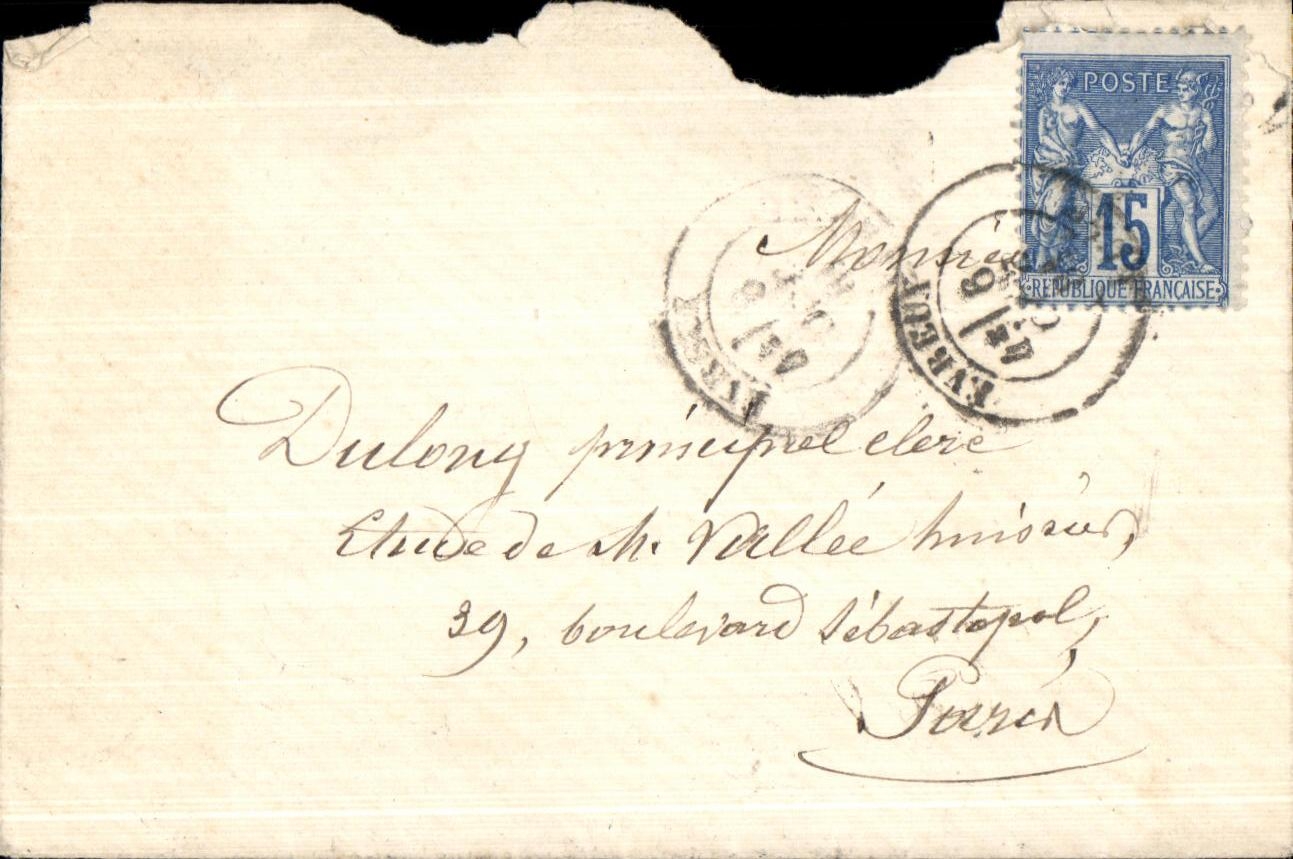 POSTE
15
RÉPUBLIQUE FRANÇAISE
EVREUX
EVREUX
Monsieur
Dulong principal clerc
Etude de Me Vallée huissier,
39, boulevard Sébastopol,
Paris